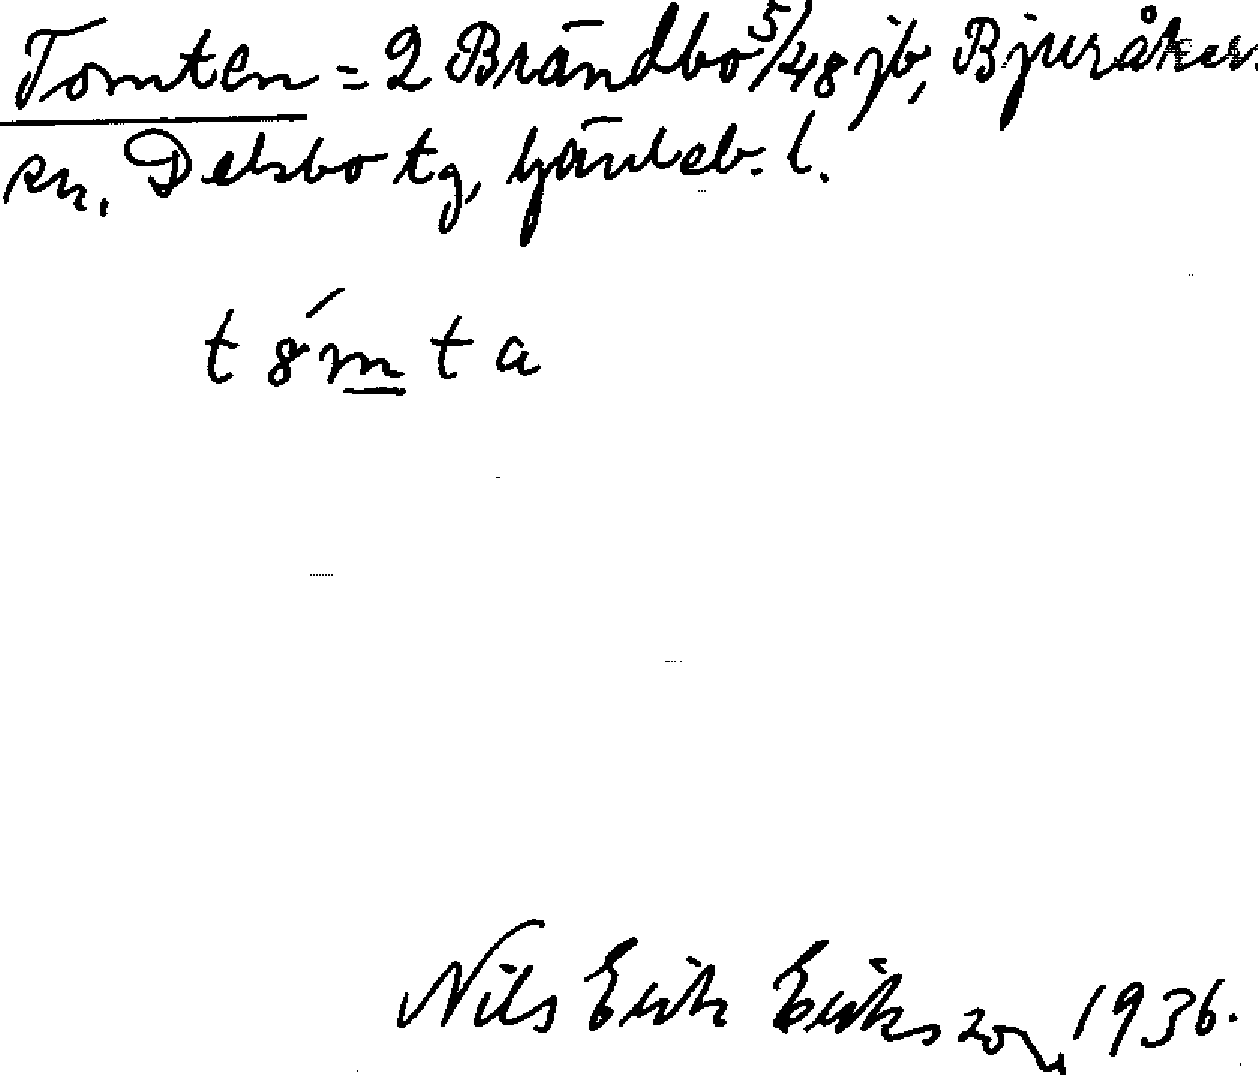 Tomten = 2 Brändbo 5/48 jb, Bjuråkers
sn. Delsbo tg, Gävleb. l.
t 8́ m t a
Nils Erik Erikszon 1936.